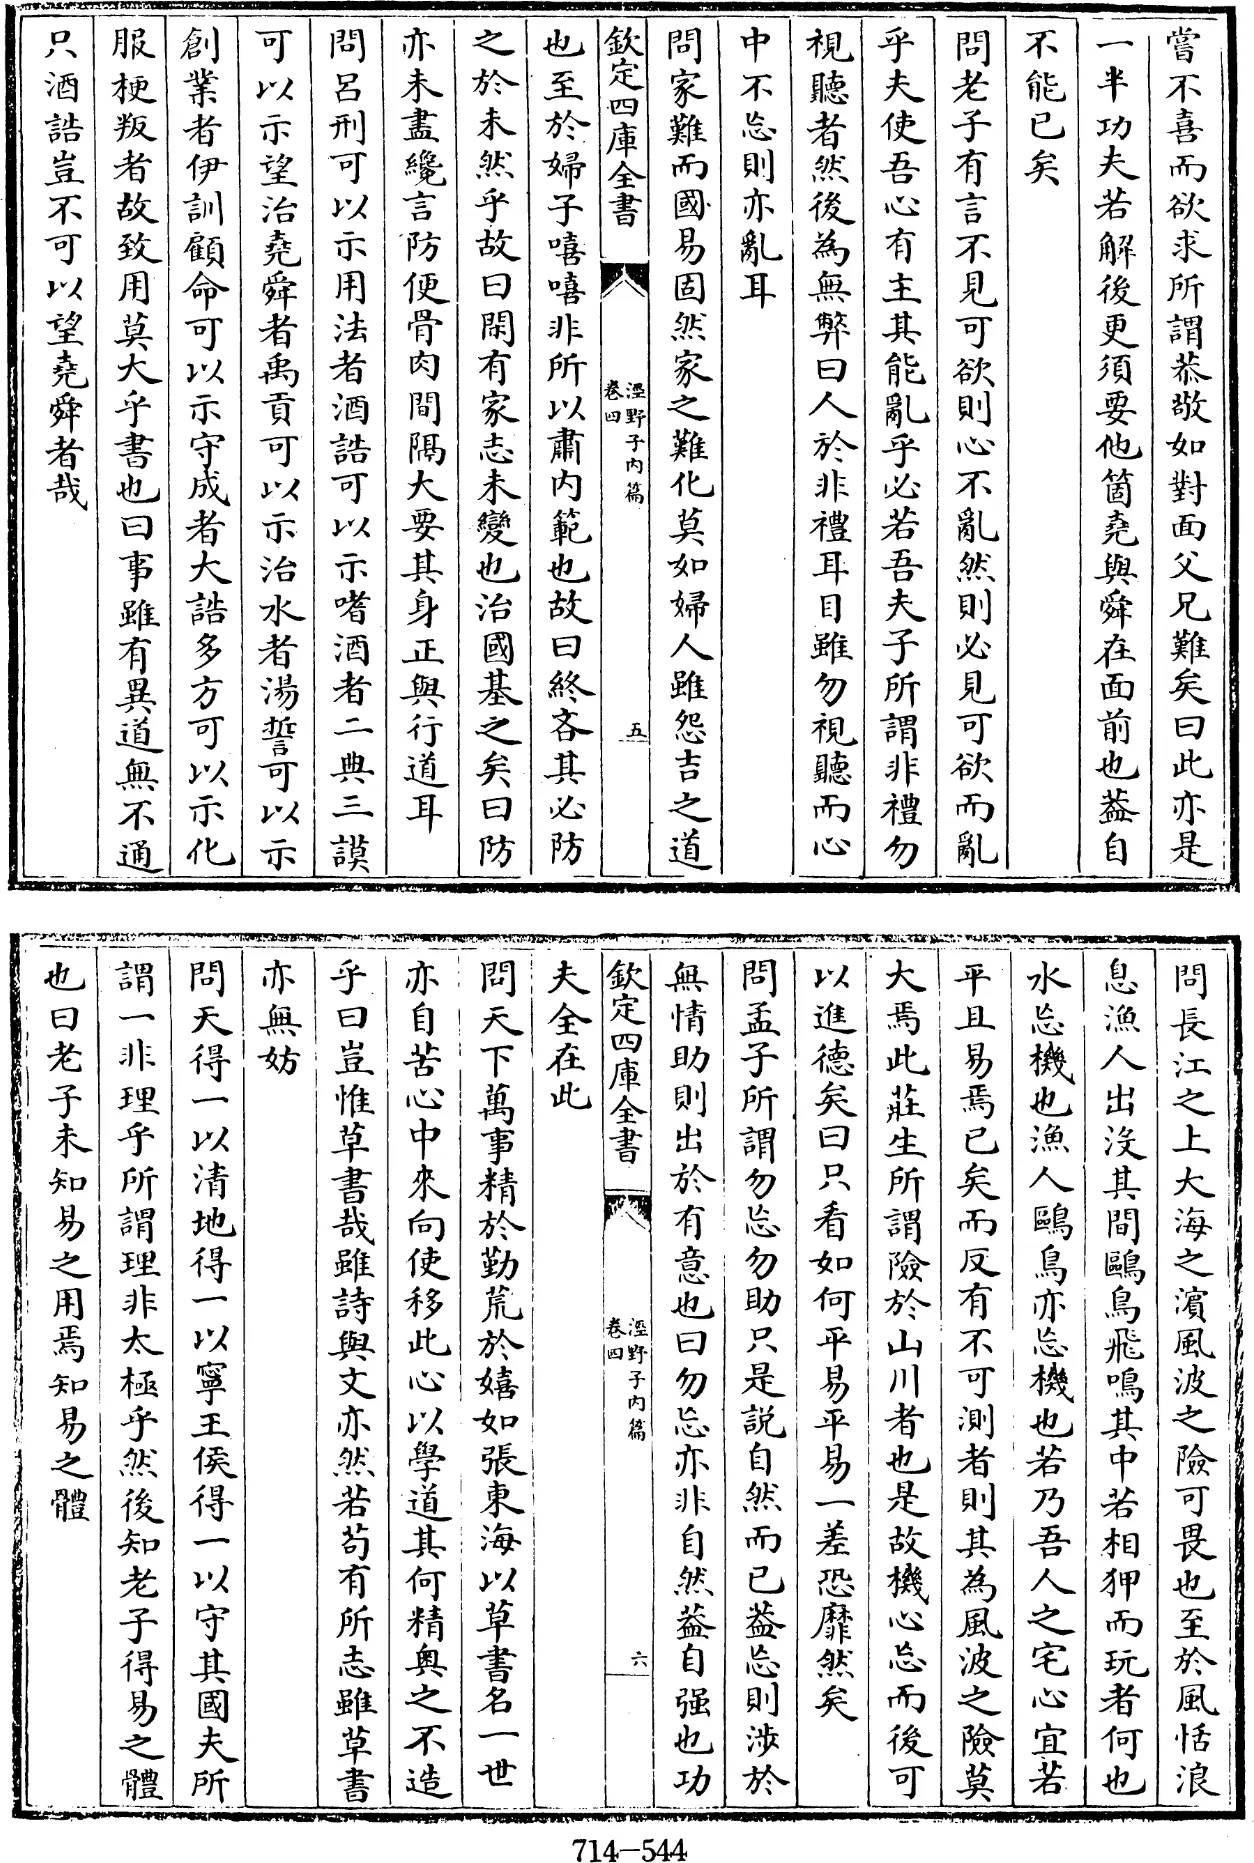 嘗不喜而欲求所謂恭敬如對面父兄難矣曰此亦是
一半功夫若解後更須要他箇堯與舜在面前也葢自
不能已矣
問老子有言不見可欲則心不亂然則必見可欲而亂
乎夫使吾心有主其能亂乎必若吾夫子所謂非禮勿
視聽者然後為無弊曰人於非禮耳目雖勿視聽而心
中不忘則亦亂耳
問家難而國易固然家之難化莫如婦人雖怨吉之道
欽定四庫全書
涇野子内篇
卷四
五
也至於婦子嘻嘻非所以肅内範也故曰終吝其必防
之於未然乎故曰閑有家志未變也治國基之矣曰防
亦未盡纔言防便骨肉間隔大要其身正與行道耳
問呂刑可以示用法者酒誥可以示嗜酒者二典三謨
可以示望治堯舜者禹貢可以示治水者湯誓可以示
創業者伊訓顧命可以示守成者大誥多方可以示化
服梗叛者故致用莫大乎書也曰事雖有異道無不通
只酒誥豈不可以望堯舜者哉
問長江之上大海之濱風波之險可畏也至於風恬浪
息漁人出没其間鷗鳥飛鳴其中若相狎而玩者何也
水忘機也漁人鷗鳥亦忘機也若乃吾人之宅心宜若
平且易焉已矣而反有不可測者則其為風波之險莫
大焉此莊生所謂險於山川者也是故機心忘而後可
以進德矣曰只看如何平易平易一差恐靡然矣
問孟子所謂勿忘勿助只是説自然而已葢忘則涉於
無情助則出於有意也曰勿忘亦非自然葢自强也功
欽定四庫全書
涇野子内篇
卷四
六
夫全在此
問天下萬事精於勤荒於嬉如張東海以草書名一世
亦自苦心中來向使移此心以學道其何精奥之不造
乎曰豈惟草書哉雖詩與文亦然若苟有所志雖草書
亦無妨
問天得一以清地得一以寧王侯得一以守其國夫所
謂一非理乎所謂理非太極乎然後知老子得易之體
也曰老子未知易之用焉知易之體
714-544